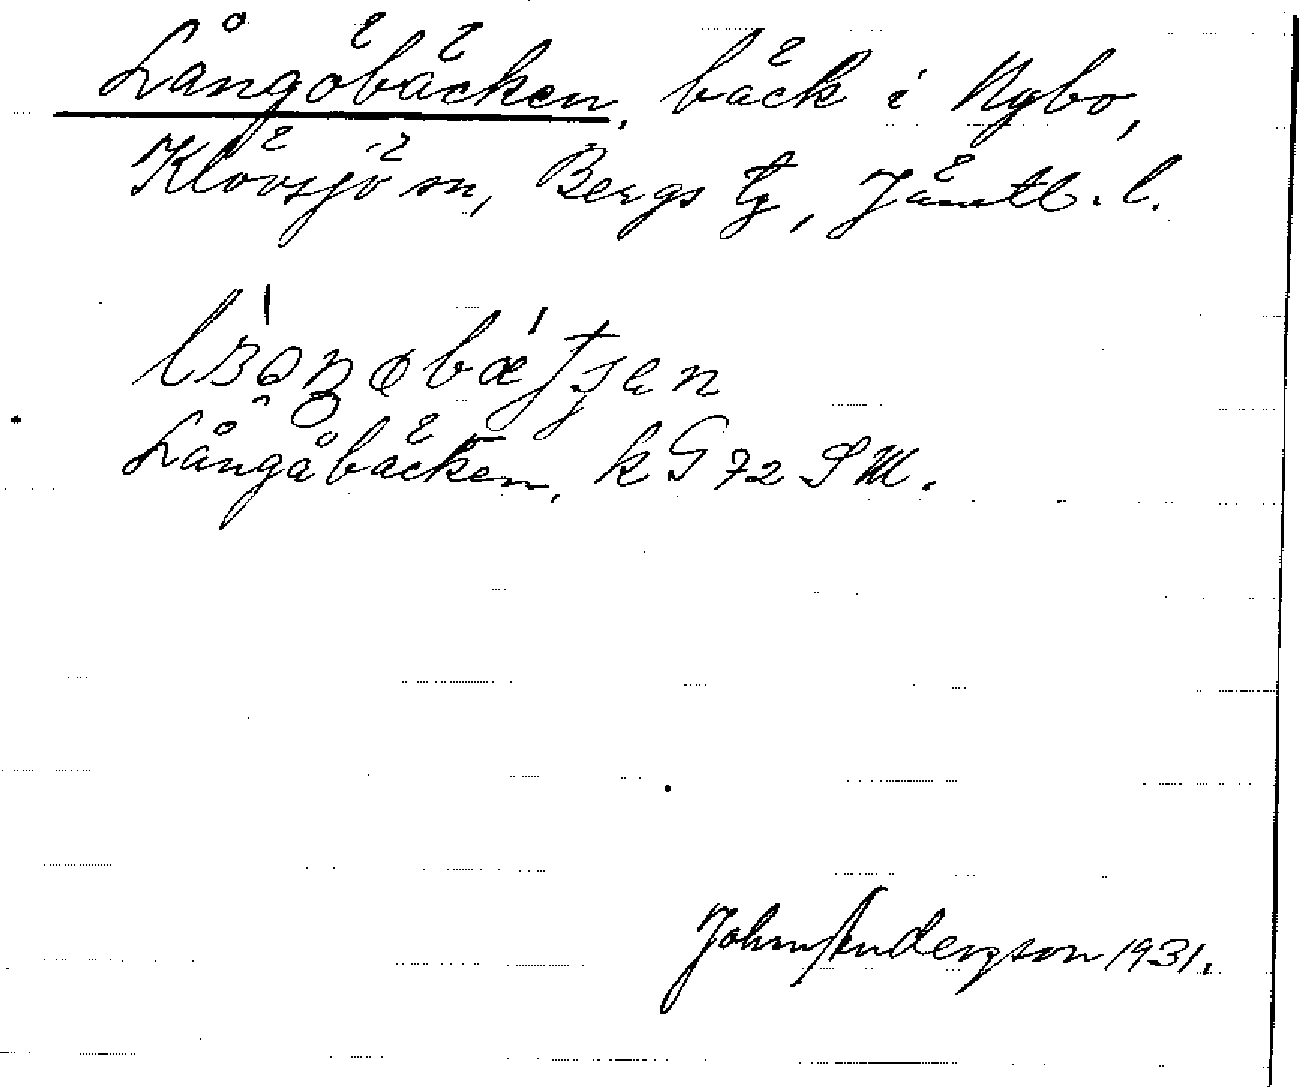 Långöbäcken, bäck i Nybo,
Klövsjö sn, Bergs tg, Jämtl. l.
Långåbäcken, k G 72 SM.
John Anderzson 1931.